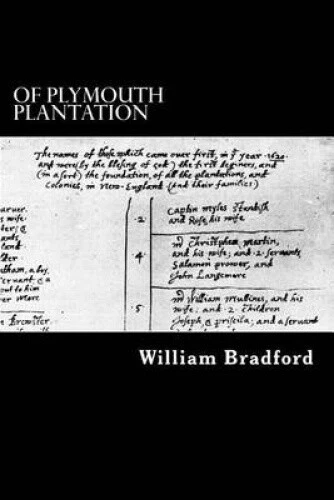 OF PLYMOUTH
PLANTATION
The names of those which came over first, in yͤ year .1620.
and were (by the blesing of god) the first beginers, and
(in a sort) the foundation, of all the plantations, and
Colonies, in New-England (And their families)
arver.
s wife
der; &
ants
land
der
tham, a boy,
ervant & a
out to him
er More
n Brewster.
.2
Captin Myles Standish
and Rose, his wife
.4.
mr Christpher Martin,
and his wife; and .2. servants
Salamon prower, and
John Langemore
.5
mr William Mulines, and his
wife; and .2. Children
Joseph, & priscila; and a servant
William Bradford